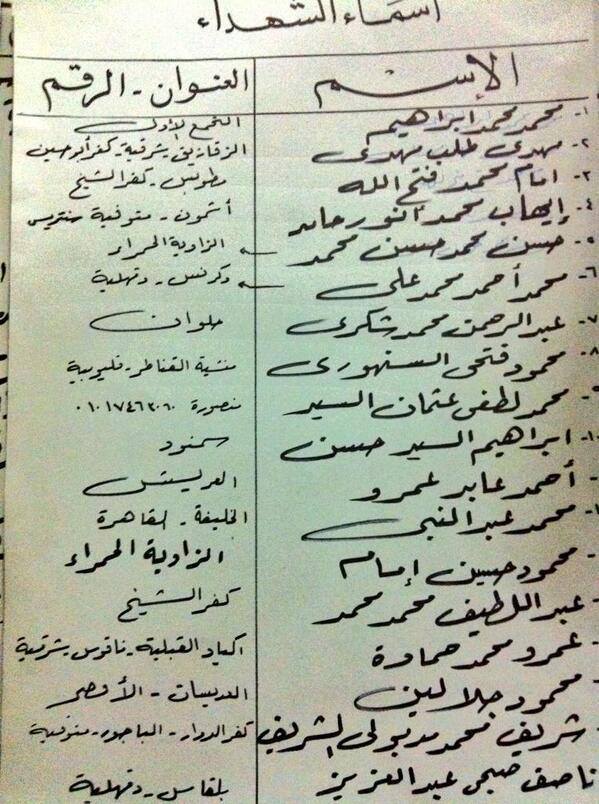 أسماء الشهداء
الإسم العنوان - الرقم
١- محمد محمد ابراهيم التجمع الأول
٢- مهدى طلب مهدى الزقازيق - شرقية - كفر أبو حسين
٣- امام محمد فتح الله مطوبس - كفر الشيخ
٤- إيهاب محمد انور حامد أشمون - منوفية سنتريس
٥- حسن محمد حسن محمد الزاوية الحمراء
٦- محمد أحمد محمد على دكرنس - دقهلية
٧- عبد الرحمن محمد شكرى حلوان
٨- محمود فتحى السنهورى منشية القناطر - قليوبية
محمد لطفى عثمان السيد منصورة ٠١٠١٧٤٦٣٠٦٠
١٠- ابراهيم السيد حسن سمنود
- أحمد عابد عمرو العريش
محمد عبد النبى الخليفة - القاهرة
- محمود حسين إمام الزاوية الحمراء
- عبد اللطيف محمد محمد كفر الشيخ
- عمرو محمد حمادة اكياد القبلية - فاقوس - شرقية
- محمود جلالين العديسات - الأقصر
- شريف محمد مدبولى الشريف كفر الدوار - الباجور - منوفية
ناصف صبحى عبد العزيز بلقاس - دقهلية